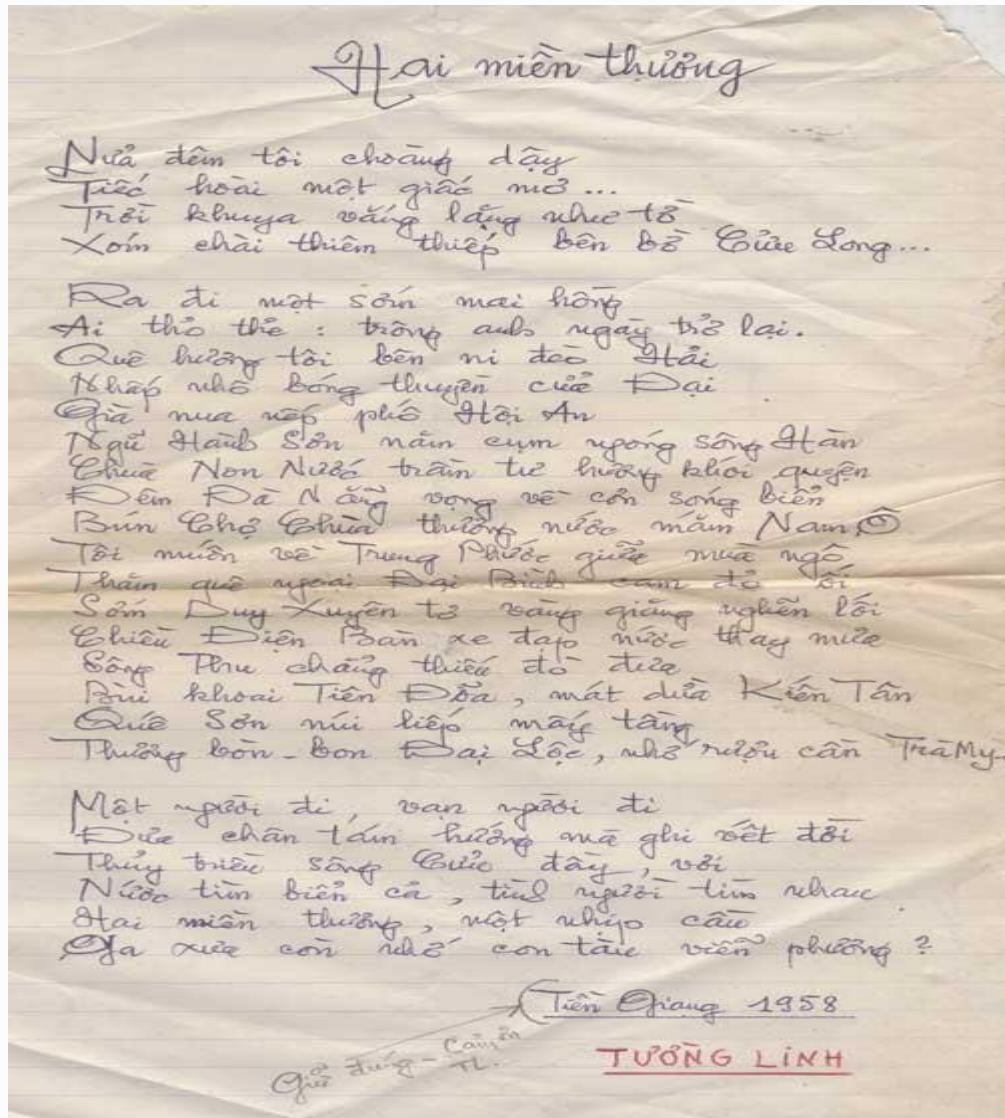 Hai miền thương
Nửa đêm tôi choàng dậy
Tiếc hoài một giấc mơ...
Trời khuya vắng lặng như tờ
Xóm chài thiêm thiếp bên bờ Cửu Long...
Ra đi một sớm mai hồng
Ai thỏ thẻ : trông anh ngày trở lại.
Quê hương tôi bên ni đèo Hải
Nhấp nhô bóng thuyền cửa Đại
Già nua nếp phố Hội An
Ngũ Hành Sơn năm cụm ngóng sông Hàn
Chùa Non Nước trầm tư hương khói quyện
Đêm Đà Nẵng vọng về cơn sóng biển
Bún Chợ Chùa thương nước mắm Nam Ô
Tôi muốn về Trung Phước giữa mùa ngô
Thăm quê ngoại Đại Bình cam đỏ ối
Sớm Duy Xuyên tơ vàng giăng nghẽn lối
Chiều Điện Bàn xe đạp nước thay mưa
Sông Thu chẳng thiếu đò đưa
Bùi khoai Tiên Đõa, mát dừa Kiến Tân
Quế Sơn núi liếp mấy tầng
Thương bòn-bon Đại Lộc, nhớ rượu cần Trà My...
Một người đi, vạn người đi
Đưa chân tám hướng mà ghi vết đời
Thủy triều sông Cửu đầy, vơi
Nước tìm biển cả, tình người tìm nhau
Hai miền thương, một nhịp cầu
Ga xưa còn nhớ con tàu viễn phương ?
Tiền Giang 1958
Giữ đúng - Cảm ơn
TL.
TƯỜNG LINH